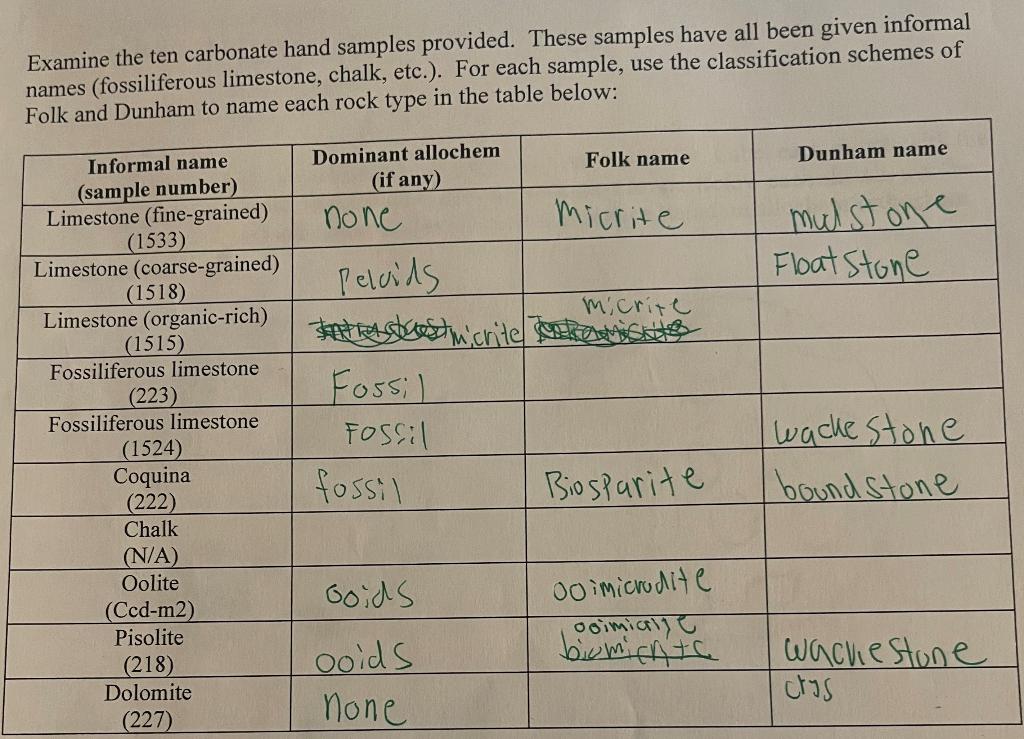 Examine the ten carbonate hand samples provided. These samples have all been given informal
names (fossiliferous limestone, chalk, etc.). For each sample, use the classification schemes of
Folk and Dunham to name each rock type in the table below:
Informal name (sample number) Dominant allochem (if any) Folk name Dunham name
Limestone (fine-grained) (1533) none Micrite mudstone
Limestone (coarse-grained) (1518) Peloids Float Stone
Limestone (organic-rich) (1515) micrite micrite
Fossiliferous limestone (223) Fossil
Fossiliferous limestone (1524) Fossil wacke stone
Coquina (222) fossil Biosparite bound stone
Chalk (N/A)
Oolite (Ccd-m2) Ooids oo imicrudite
Pisolite (218) ooids ooimicrite biomicrite wacke stone
Dolomite (227) none crys